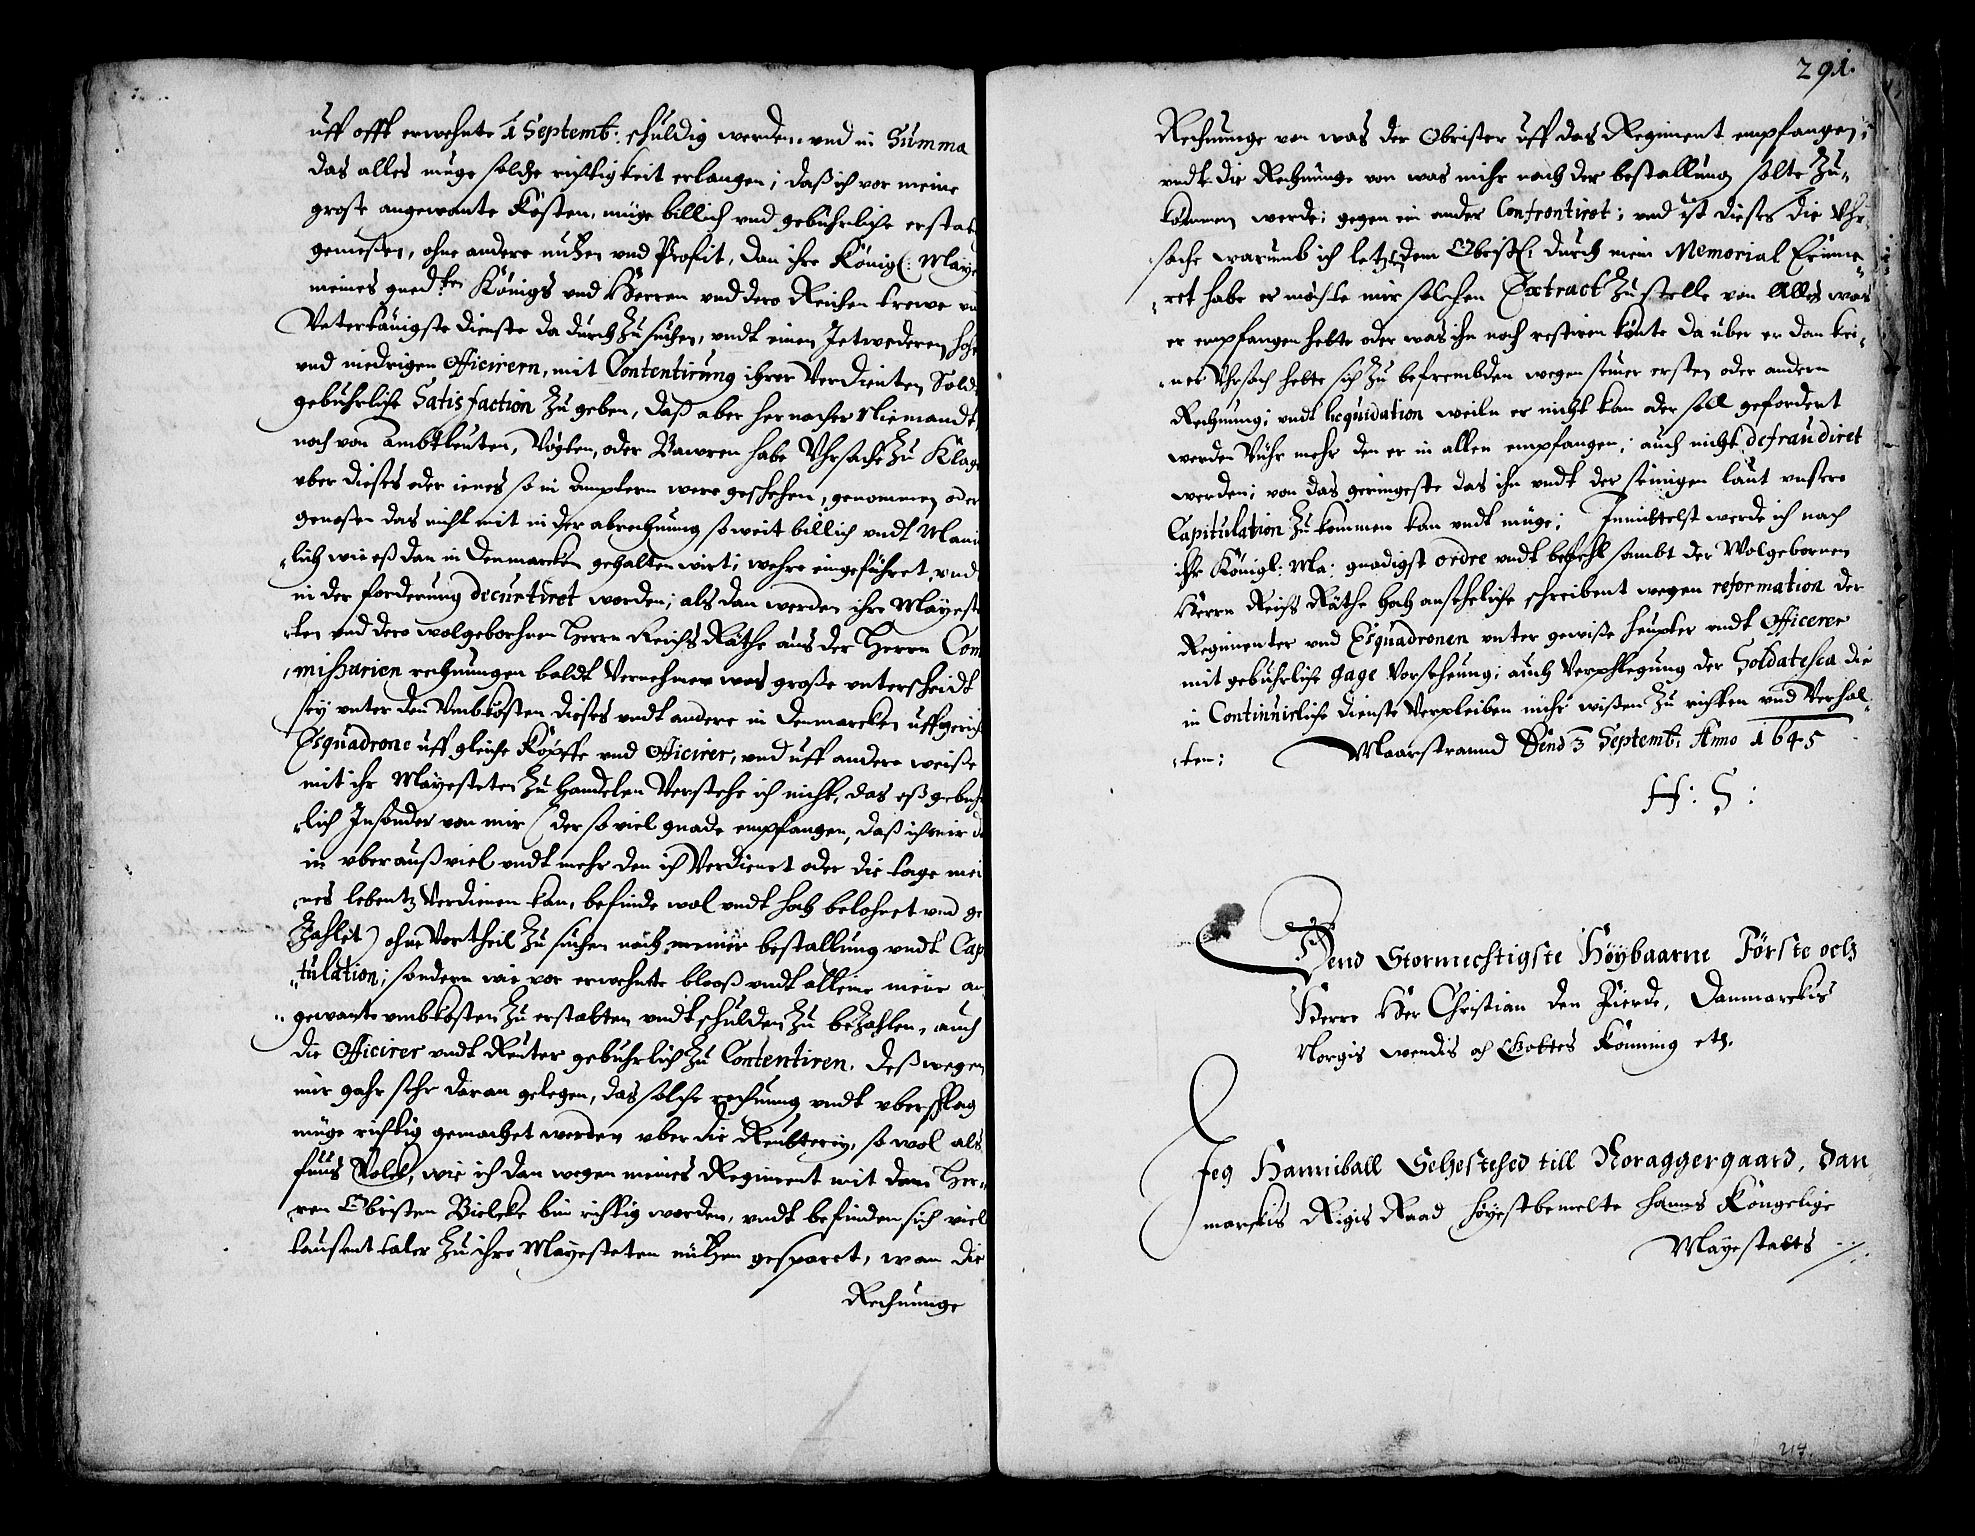 uff offt erwehnte 1 Septemb: schuldig werden. vnd in Summa
das alles müge solche richtigkeit erlangen; daß ich vor meine
große angewante Kosten, müge billich vnd gebührliche erstat
genießen, ohne andere nutzen vnd Profit, dan ihre Königl: Maye
meines gned:ten Königs vnd Herren vnd dero Reichen trewe vn
Vntertänigste dienste dadurch Zu suchen, vndt einen Jetwederen hohe
vnd niedrigen Officirern, mit Contentirung ihrer Verdienten Sold
gebührliche Satisfaction Zu geben, daß aber hernacher Niemandt
noch von Ambtleuten, Vögten, oder Bawren habe Vhrsache Zu Klag
vber dieses oder ienes so in Ämptern were geschehen, genommen oder
genoßen das nicht mit in der abrechnung so weit billich vndt Mani
lich wie eß dan in Denmarcken gehalten wirt; wehre eingeführet, vnd
in der forderung decurtiret worden; als dan werden ihre Mayest
ten vnd dero wolgebohrnen Herrn Reichs Räthe aus der Herrn Com
missarien rechnungen baldt Vernehmen was große unterscheidt
sey unter den Vnkosten dieses vndt andere in Denmarcken uffgerich
Esquadrone uff gleiche Köpffe vnd Officirer, vnd uff andere weiße
mit ihr Mayesteten Zu Handelen Verstehe ich nicht, das eß gebuh
rlich Insonder von mir (der so viel gnade empfangen, daß ich mir da
in vberauß viel vndt mehr den ich Verdienet oder die tage mei
nes lebentz Verdienen kan, befinde wol vndt hoch belohnet vnd ge
Zahlet) ohne Vortheil Zu suchen nach meiner bestallung vndt Cap
tulation; sondern wie vor erwehnte blooß vndt alleine meine an
gewante vmbkosten Zu erstatten vndt schulden Zu beZahlen, auch
die Officirer vndt Reuter gebuhrlich Zu Contentiren. Deßwegen
mir gahr sehr daran gelegen, das solche rechnung vndt vberschlag
müge richtig gemachet werden vber die Reutterey, so wol als
fuus Volck, wie ich dan wegen meines Regiment mit dem Her¬
ren Obristen Bielcke bin richtig worden, vndt befinden sich viel
tausent taler Zu ihre Mayesteten nutzen gesparet, wan die
Rechnunge
291.
Rechnunge von was der Obrister uff das Regiment empfangen;
vndt die Rechnunge von was mihr nach der bestallung solte Zu¬
kommen werde; gegen ein ander Confrontiret; vnd ist dieses die Vhr¬
sache warumb ich letzt dem Obrist: durch mein Memorial Erinne¬
ret habe er möchte mir solchen Extract Zustelle von Alles was
er empfangen hette oder was ihn noch restiren konte da uber er dan kei¬
nes Vhrsach hette sich Zu befrembden wegen seiner ersten oder andern
Rechnung; vndt liquidation weiln er nicht kan oder soll gefordert
werden Vühr mehr den er in allen empfangen; auch nicht defraudiret
werden; von das geringeste das ihn vndt der seinigen laut vnsere
Capitulation Zu kommen kan vndt müge; Inmittelst werde ich nach
ihr Königl: Ma: gnedigst ordre vndt befehl sambt der Wolgebornen
Herrn Reichs Räthe hoch ansehliche schreibent wegen reformation der
Regimenter vnd Esquadronen unter gewiße heupter vndt Officerer
mit gebührliche gage Vorsehung; auch Verpflegung der Soldatesca die
in Continuirliche dienste Verpleiben mihr wißen Zu richten vnd Verhal¬
ten; Maarstrannd Dend 3 Septemb: Anno 1645
H: S:
Dend Stormechtigste Høybaarne Förste och
Herre Her Christian den Fierde, Danmarckis
Norgis wendis och Gottes Könning etz.
Jeg Hanniball Sehested till Noraggergaard, Dan
marckis Rigis Raad høyestbemelte Hanns Köngelige
Mayestatts
214.